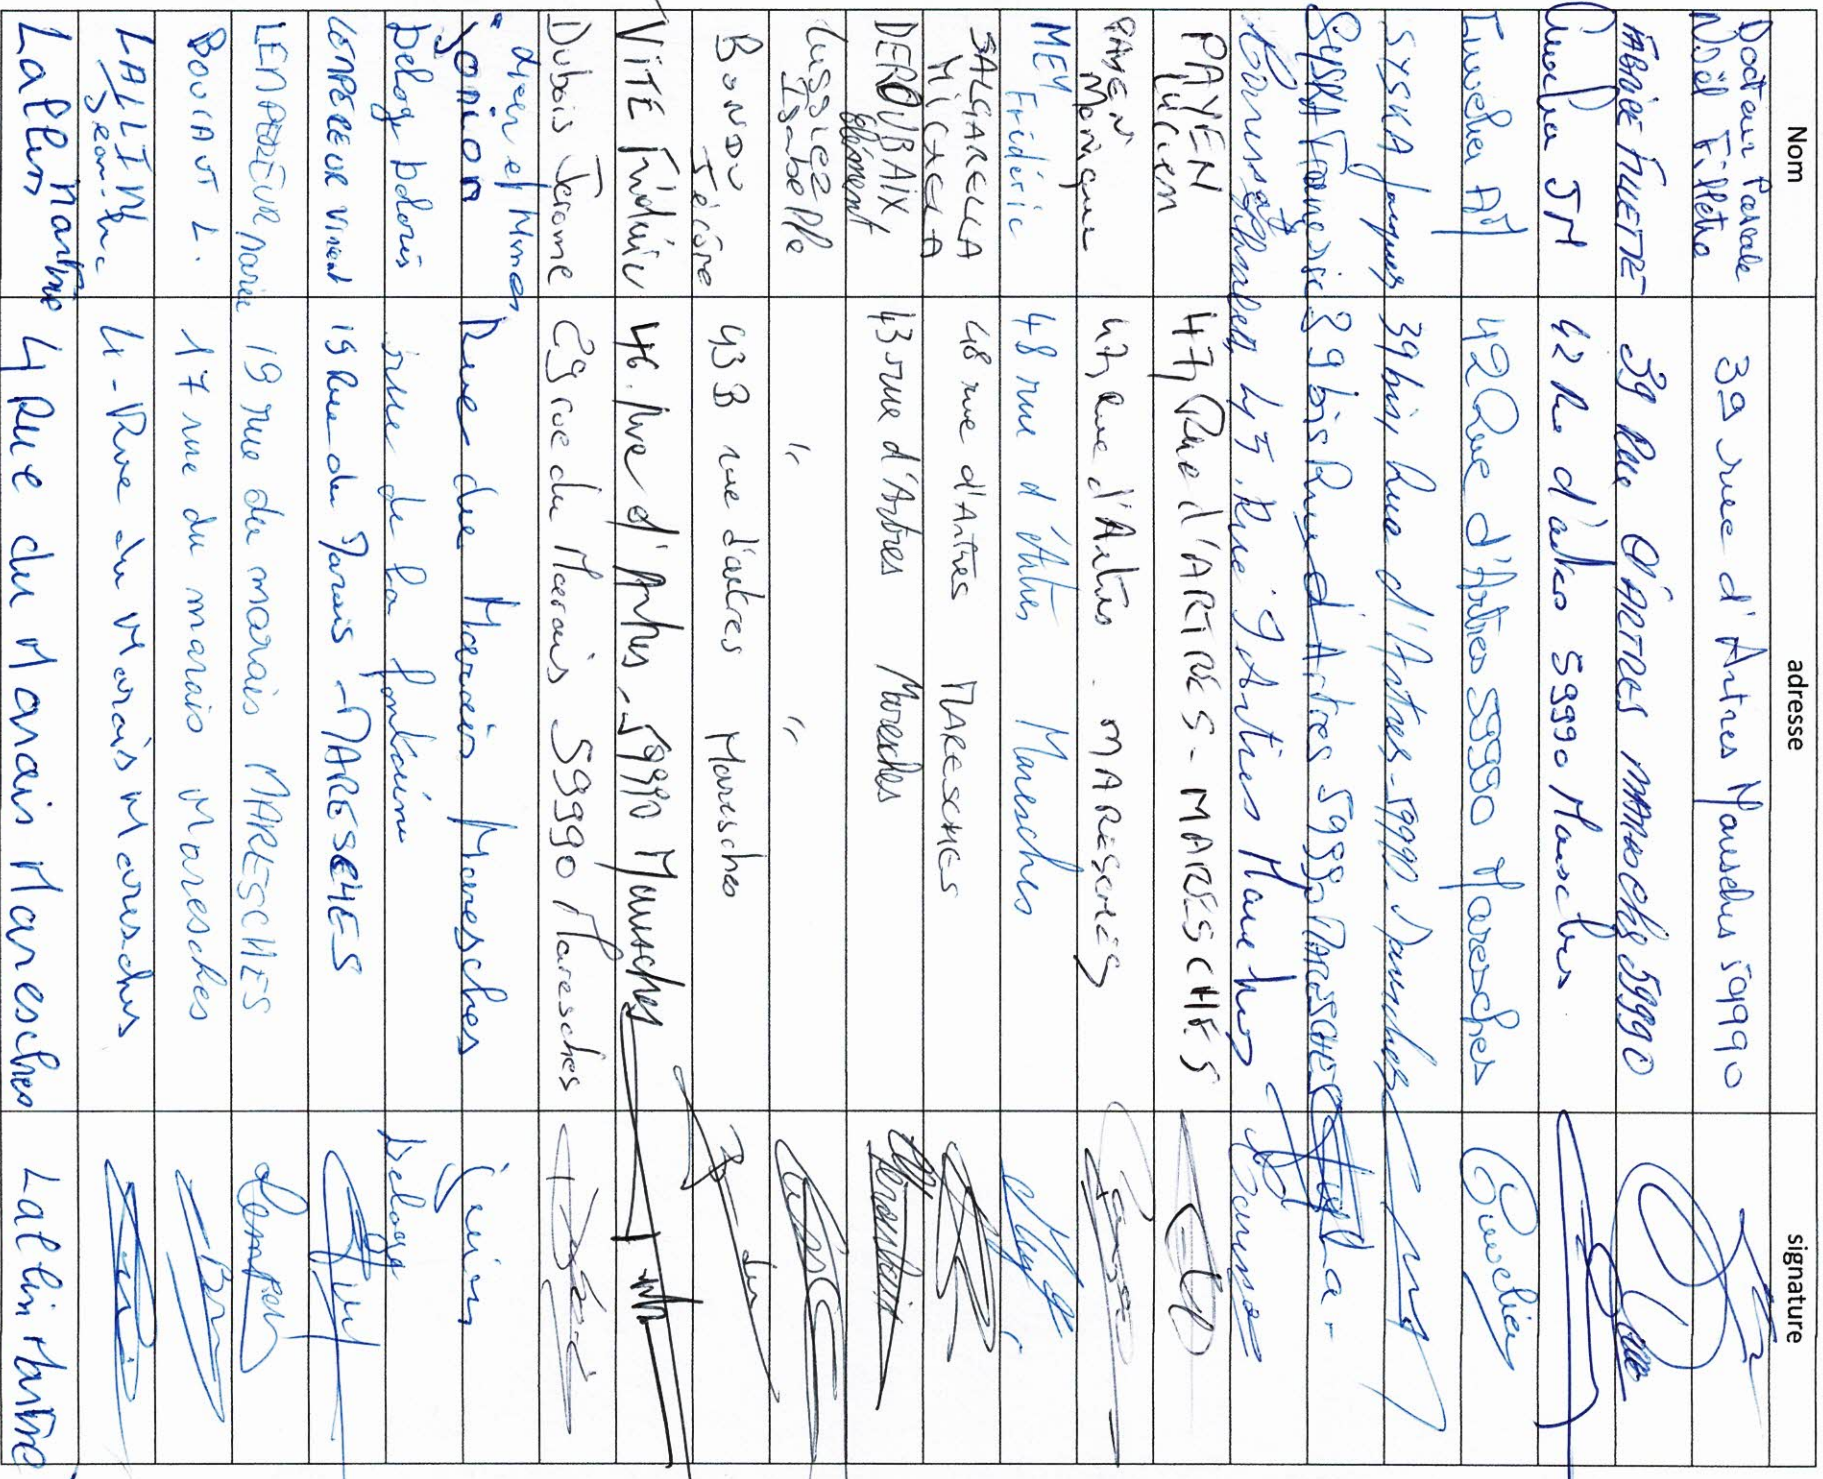 Nom adresse signature
Docteur Pascale
Noël Fillette 39 rue d'Artres Maresches 59990
FABRE HUETTE 39 Rue D'ARTRES MARESCHES 59990
JM 42 Rue d'artres 59990 Maresches
AM 42 Rue d'Artres 59990 Maresches
SYSKA Jacques 39 bis, Rue d'Artres - 59990 - Maresches
SYSKA Françoise 39 bis Rue d'Artres 59990 MARESCHES Syska -
45, Rue d'Artres Maresches
PAYEN
Lucien 47, Rue d'ARTRES - MARESCHES
PAYEN
Monique 47, Rue d'Artres . MARESCHES
MEY
Frédéric 48 rue d'Artres Maresches
SALGARELLA
MICAELA 48 rue d'Artres MARESCHES
DEROUBAIX
Clément 43 rue d'Artres Maresches Deroubaix
Lussiez
Isabelle " "
BONDU
Jérôme 43 B rue d'artres Maresches
VITE Frédéric 46 Rue d'Artres - 59990 Maresches
Dubois Jerome 29 rue du Marais 59990 Maresches
Mer et Mme
Jonion Rue du Marais Maresches
Deloge Doloris rue de la fontaine Deloge
COMPEREUR Vincent 19 Rue du Marais - MARESCHES
LEMPEREUR Marie 19 rue du marais MARESCHES
BOUCAUT L. 17 rue du marais Maresches
LALLIN
Jeannine 4 - Rue du Marais Maresches
Lallin Martine 4 Rue du Marais Maresches Lallin Martine